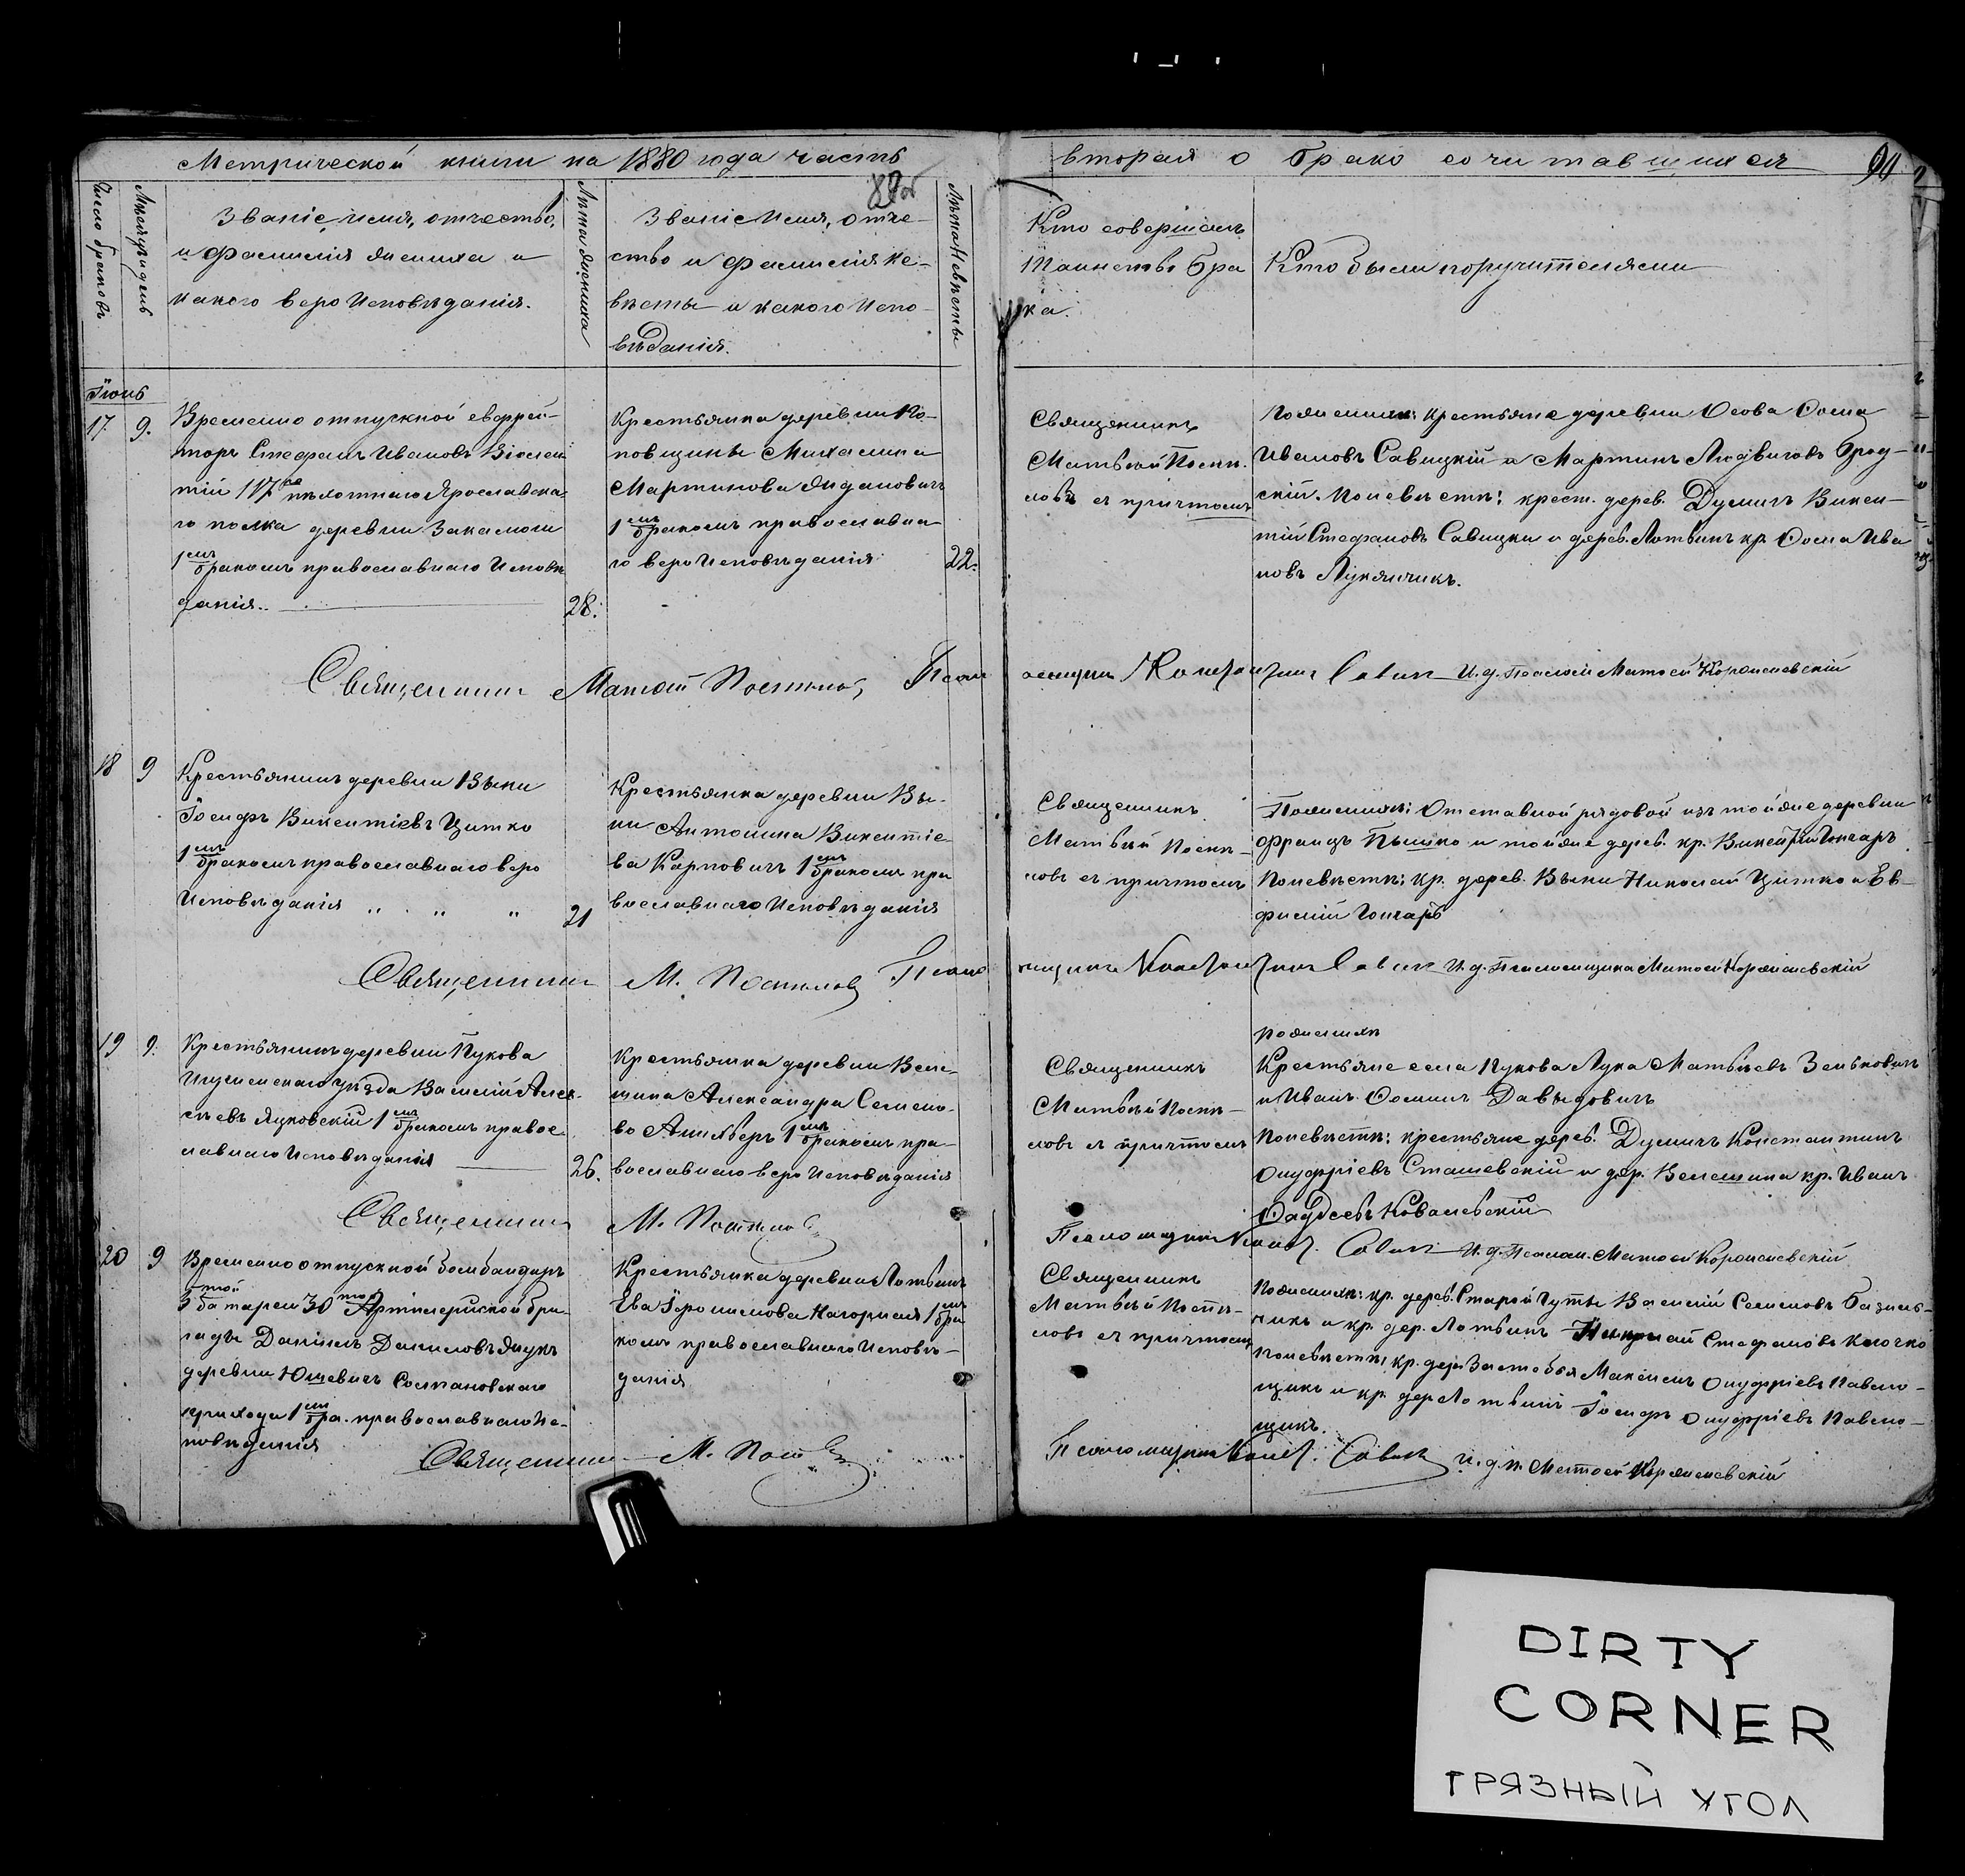 Метрической книги на 1880 года часть
вторая о брако сочитавшихся
90
89об
Число браковъ
Мѣсяцъ и день
Званіе, имя, отчество,
и фамилія жениха и
какого вероисповѣданія.
Лѣта жениха
Званіе имя, отче-
ство и фамилія не-
вѣсты и какого испо-
вѣданія.
Лѣта невѣсты
Кто совершалъ
таинство бра
ка.
Кто были поручителями
Іюнь
17. 9.
Временно отпускной ефрей-
торъ Стефанъ Ивановъ
тій 117го пѣхотнаго Ярославска-
го полка деревни
1мъ бракомъ православнаго исповѣ
данія.
28.
Крестьянка деревни По-
повщины Михалина
Мартинова Жидановичъ
1мъ бракомъ православна
го вероисповѣданія
22.
Священникъ
Матвѣй Поспѣ-
ловъ съ причтомъ
По женихѣ: крестьяне деревни Осова Фома
Ивановъ Савицкій и Мартинъ Людвиговъ Брод-
скій. По невѣстѣ: крест. дерев. Думичъ Викен-
тій Стефановъ Савицки и дерев. Лотвинъ кр. Фома Ива
новъ Лукьянчикъ.
Священникъ Матѳей Поспѣловъ, Псаломщикъ Савичъ И. д. Псалом. Матѳей
18 9
Крестьянинъ деревни Выни
Іосифъ Викентіевъ Цитко
1мъ бракомъ православнаго веро
исповѣданія " " "
21
Крестьянка деревни Вы-
ни Антонина Викентіе-
ва Карповичъ 1мъ бракомъ пра
вославнаго исповѣданія
Священникъ
Матвѣй Поспѣ-
ловъ съ причтомъ
По женихѣ: Отставной рядовой изъ той же деревни
Францъ Пышко и той же дерев. кр. Викентій Гончаръ
По невѣстѣ: кр. дерев. Выни Николай Цитко и Ев-
фимій Гончаръ
Священникъ М. Поспѣловъ Псаломщикъ Савичъ И. д. Псаломщика Матѳей
19 9.
Крестьянинъ деревни Пукова
Игуменскаго уѣзда Василій Алек-
сѣевъ Яцковскій 1мъ бракомъ право
славнаго исповѣданія
26.
Крестьянка деревни Веле-
шина Александра Семено-
ва 1мъ бракомъ пра-
вославнаго вероисповѣданія
Священникъ
Матвѣй Поспѣ-
ловъ съ причтомъ
По женихѣ
Крестьяне села Пукова Лука Матвѣевъ Зеньковичъ
и Иванъ Фоминъ Давыдовичъ
По невѣстѣ: крестьяне дерев. Думичъ Константинъ
Онуфріевъ Сташевскій и дер. Велешина кр. Иванъ
Фадѣевъ Ковалевскій
Священникъ М. Поспѣловъ
Псаломщикъ Савичъ И. д. Псалом. Матѳей
20 9
Временно отпускной бомбандиръ
3той батареи 30той Артилерійской бри-
гады Даніилъ Даниловъ Яцукъ
деревни Юшевичъ
прихода 1мъ бра. православнаго ис-
повѣданія
Крестьянка деревни Лотвинъ
Ева Іеронимова Нагорная 1мъ бра
комъ православнаго исповѣ-
данія
Священникъ
Матвѣй Поспѣ-
ловъ съ причтомъ
По женихѣ: кр. дерев. Старой Гуты Василій Семеновъ Базыль-
чикъ и кр. дер. Лотвинъ Николай Стефановъ Клочко
По невѣстѣ, кр. дер. Застобья Максимъ Онуфріевъ Павлю-
щикъ и кр. дер. Лотвинъ Іосифъ Онуфріевъ Павлю-
щикъ.
Священникъ М. Посп
Псаломщикъ Савичъ и. д. п. Матѳей
DIRTY
CORNER
ГРЯЗНЫЙ УГОЛ